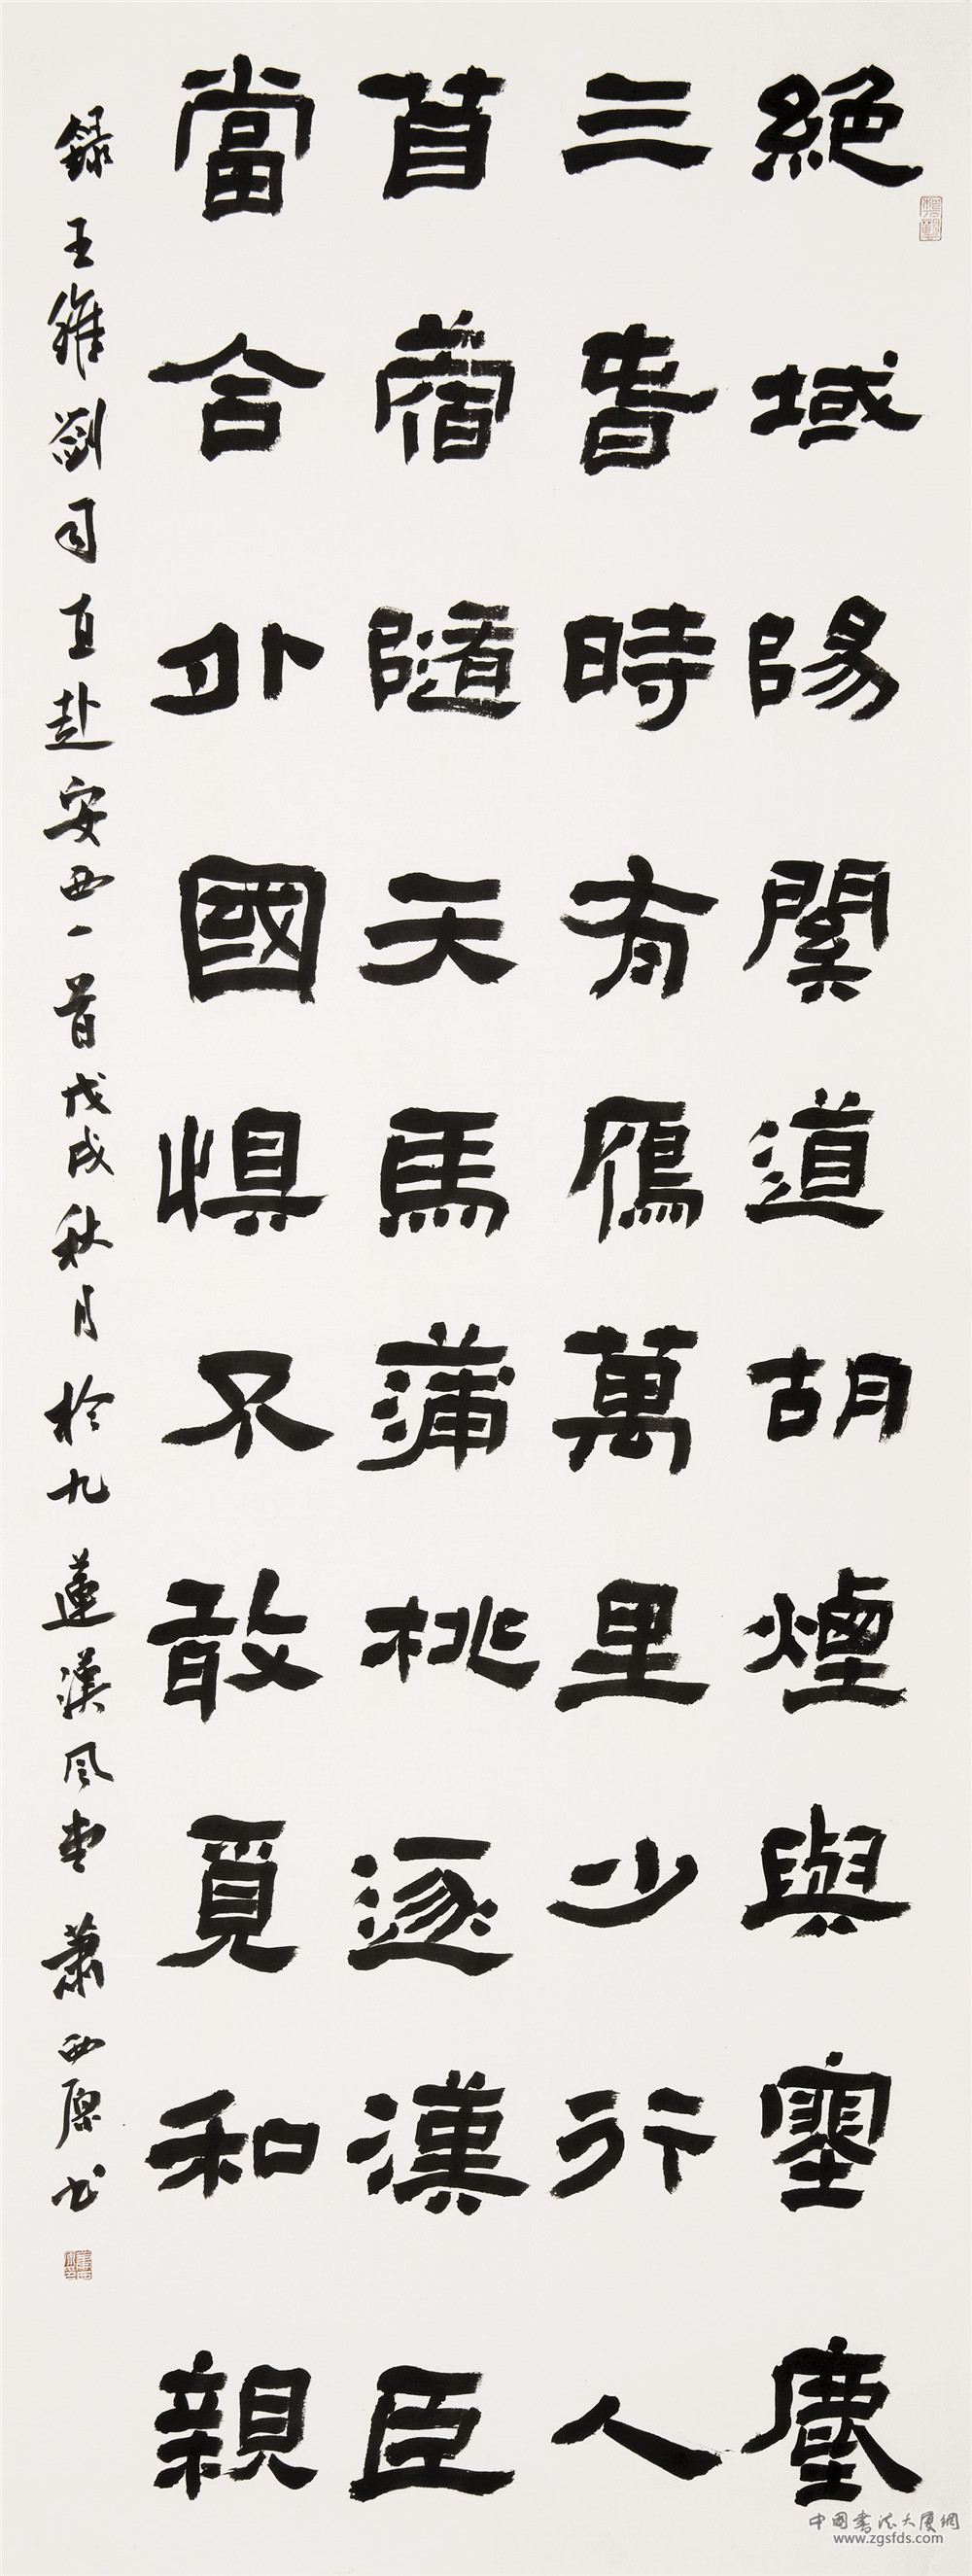 絕域陽關道胡煙與塞塵
三春時有鴈萬里少行人
苜蓿隨天馬蒲桃逐漢臣
當令外國懼不敢覓和親
錄王維劉司直赴安西一首戊戌秋月於九蓮漢風堂蕭西原書
中國書法大廈網
www.zgsfds.com